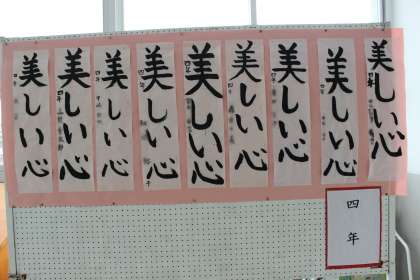 美しい心
美しい心
美しい心
美しい心
美しい心
美しい心
美しい心
美しい心
美しい心
四年